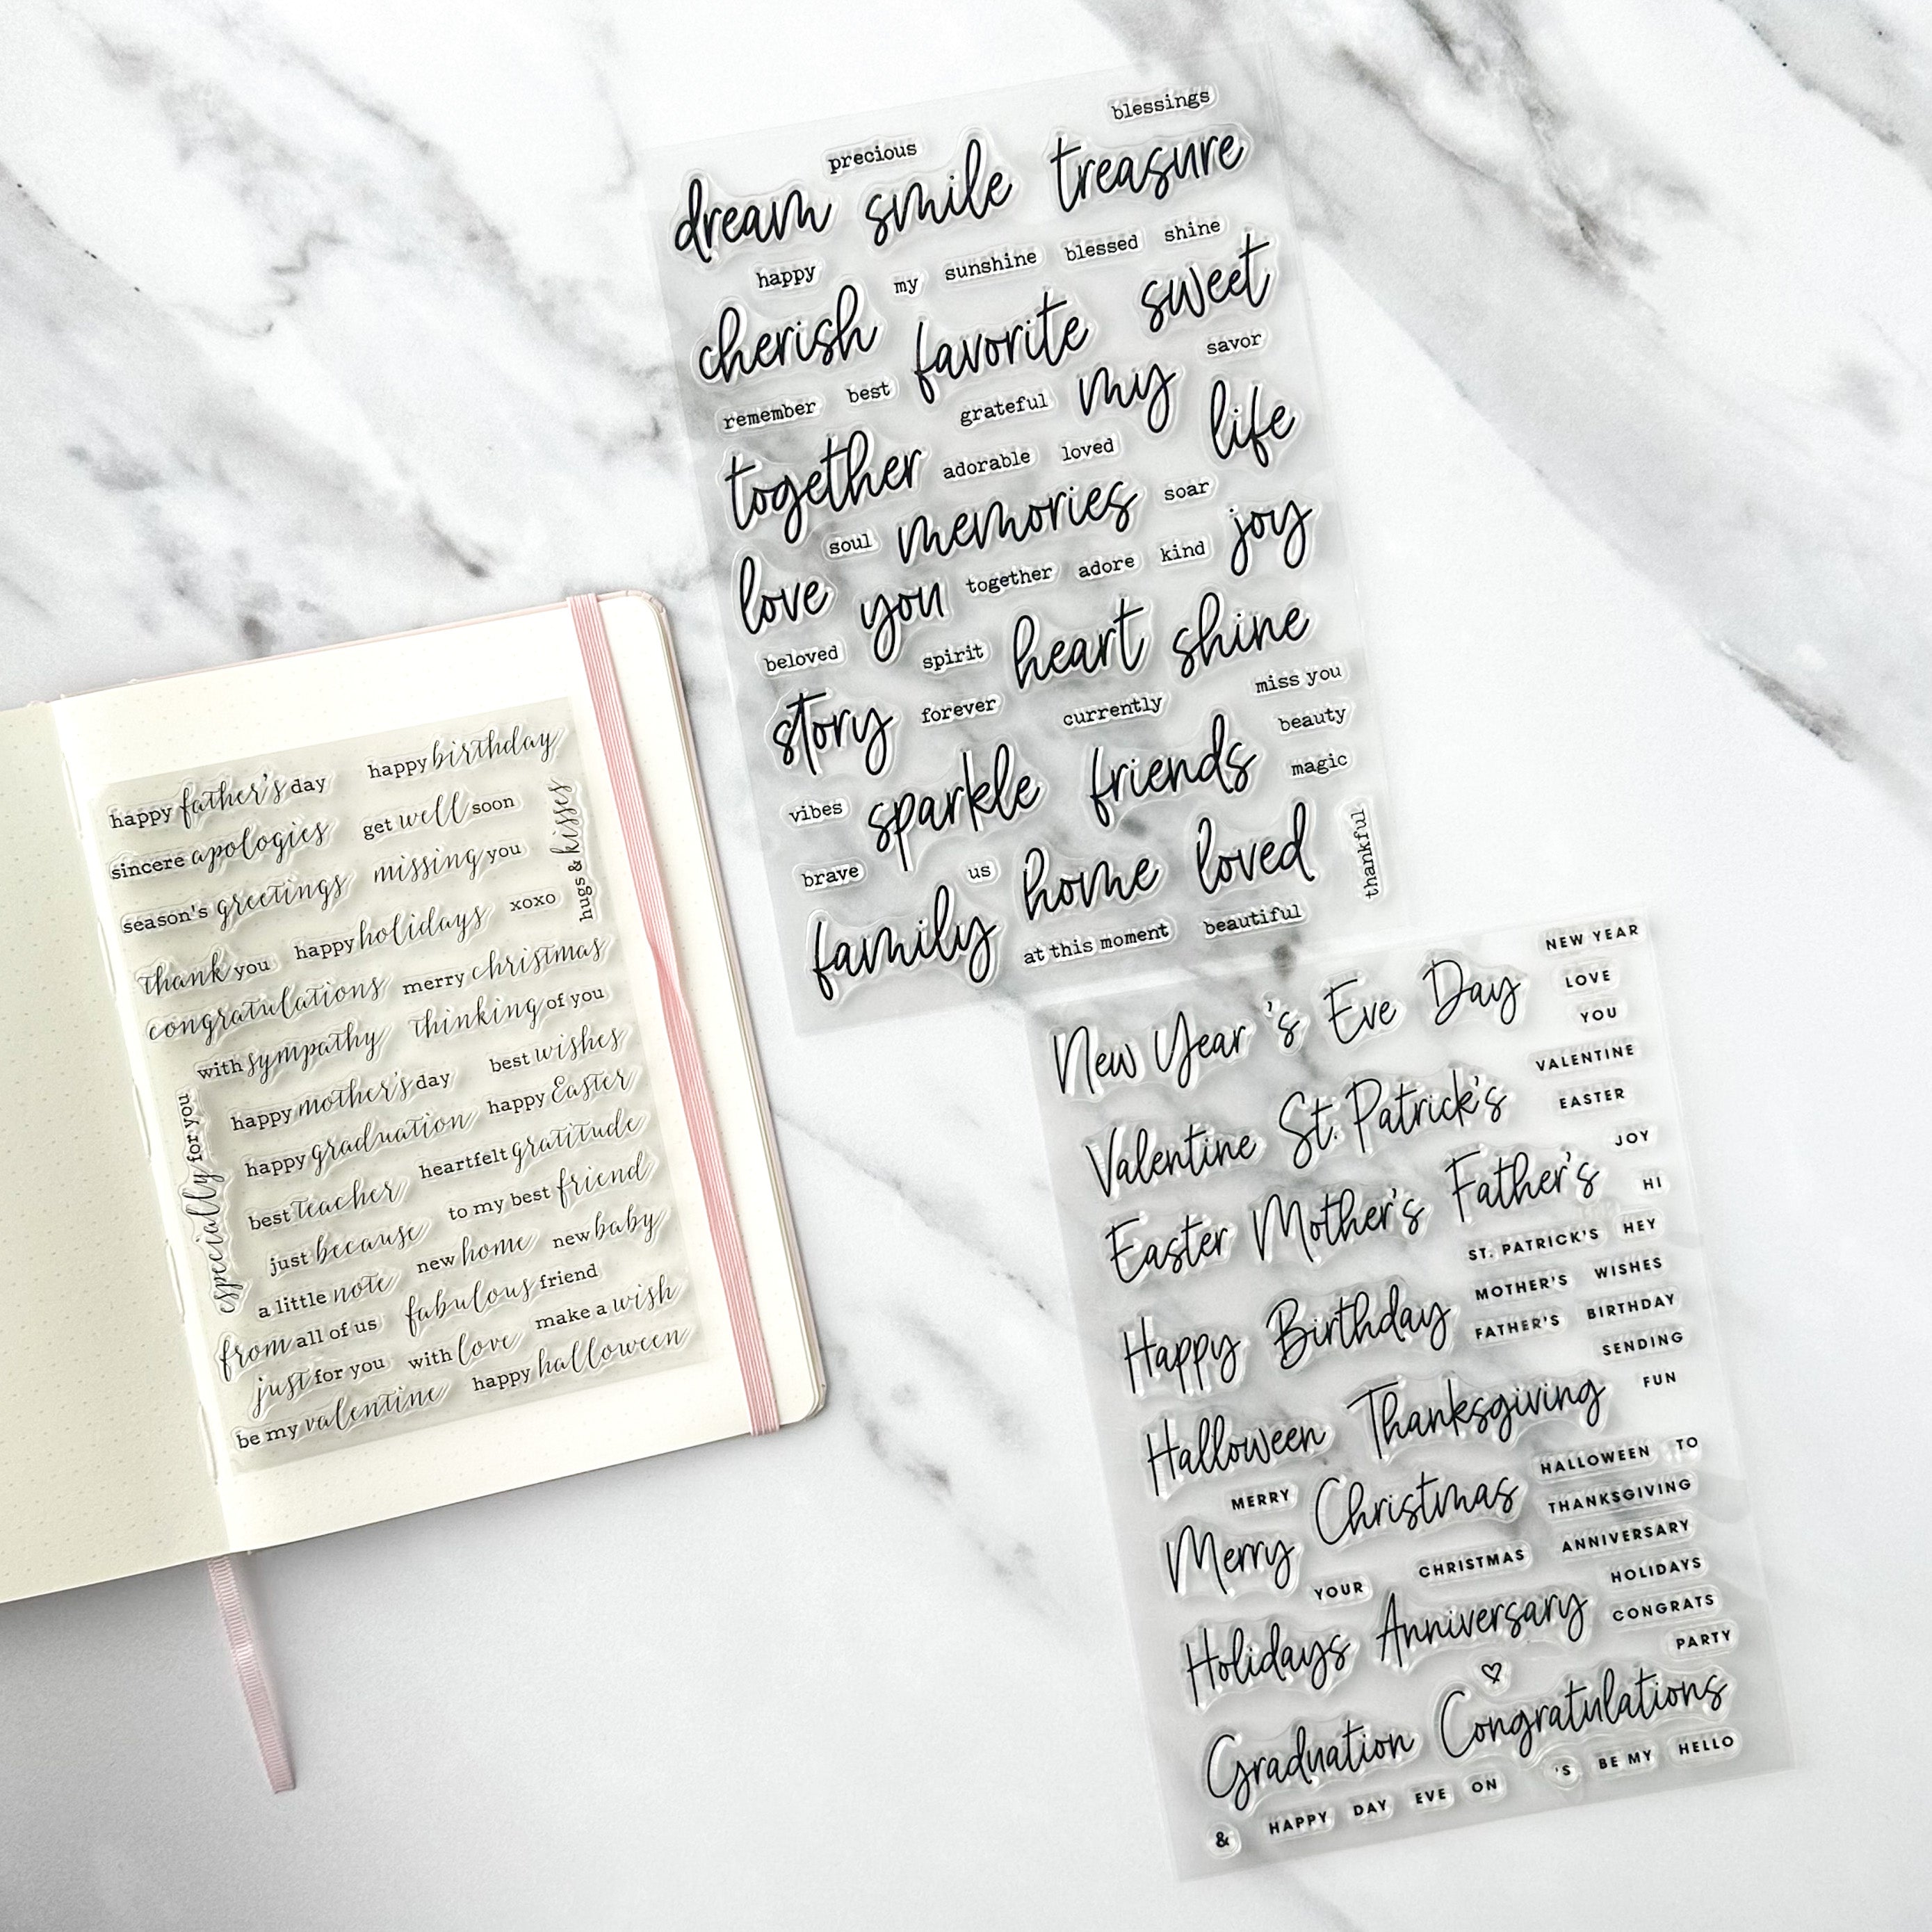 happy father's day happy birthday
sincere apologies get well soon
season's greetings missing you
hugs & kisses
thank you happy holidays xoxo
congratulations merry christmas
with sympathy thinking of you
happy mother's day best wishes
happy graduation happy Easter
especially for you
best teacher heartfelt gratitude
just because to my best friend
a little note new home new baby
from all of us fabulous friend
just for you with love make a wish
be my valentine happy halloween
precious blessings
dream smile treasure
happy my sunshine blessed shine
cherish favorite sweet
remember best grateful my savor
together adorable loved life
soul memories soar
love you together adore kind joy
beloved spirit heart shine
story forever currently miss you
beauty
vibes sparkle friends magic
brave us home loved thankful
family at this moment beautiful
New Year 's Eve Day NEW YEAR
LOVE
YOU
Valentine St. Patrick's VALENTINE
EASTER
Easter Mother's Father's JOY
HI
ST. PATRICK'S HEY
MOTHER'S WISHES
Happy Birthday FATHER'S BIRTHDAY
SENDING
Halloween Thanksgiving FUN
HALLOWEEN TO
MERRY Christmas THANKSGIVING
Merry YOUR CHRISTMAS ANNIVERSARY
HOLIDAYS
Holidays Anniversary CONGRATS
PARTY
Graduation Congratulations
& HAPPY DAY EVE ON 'S BE MY HELLO